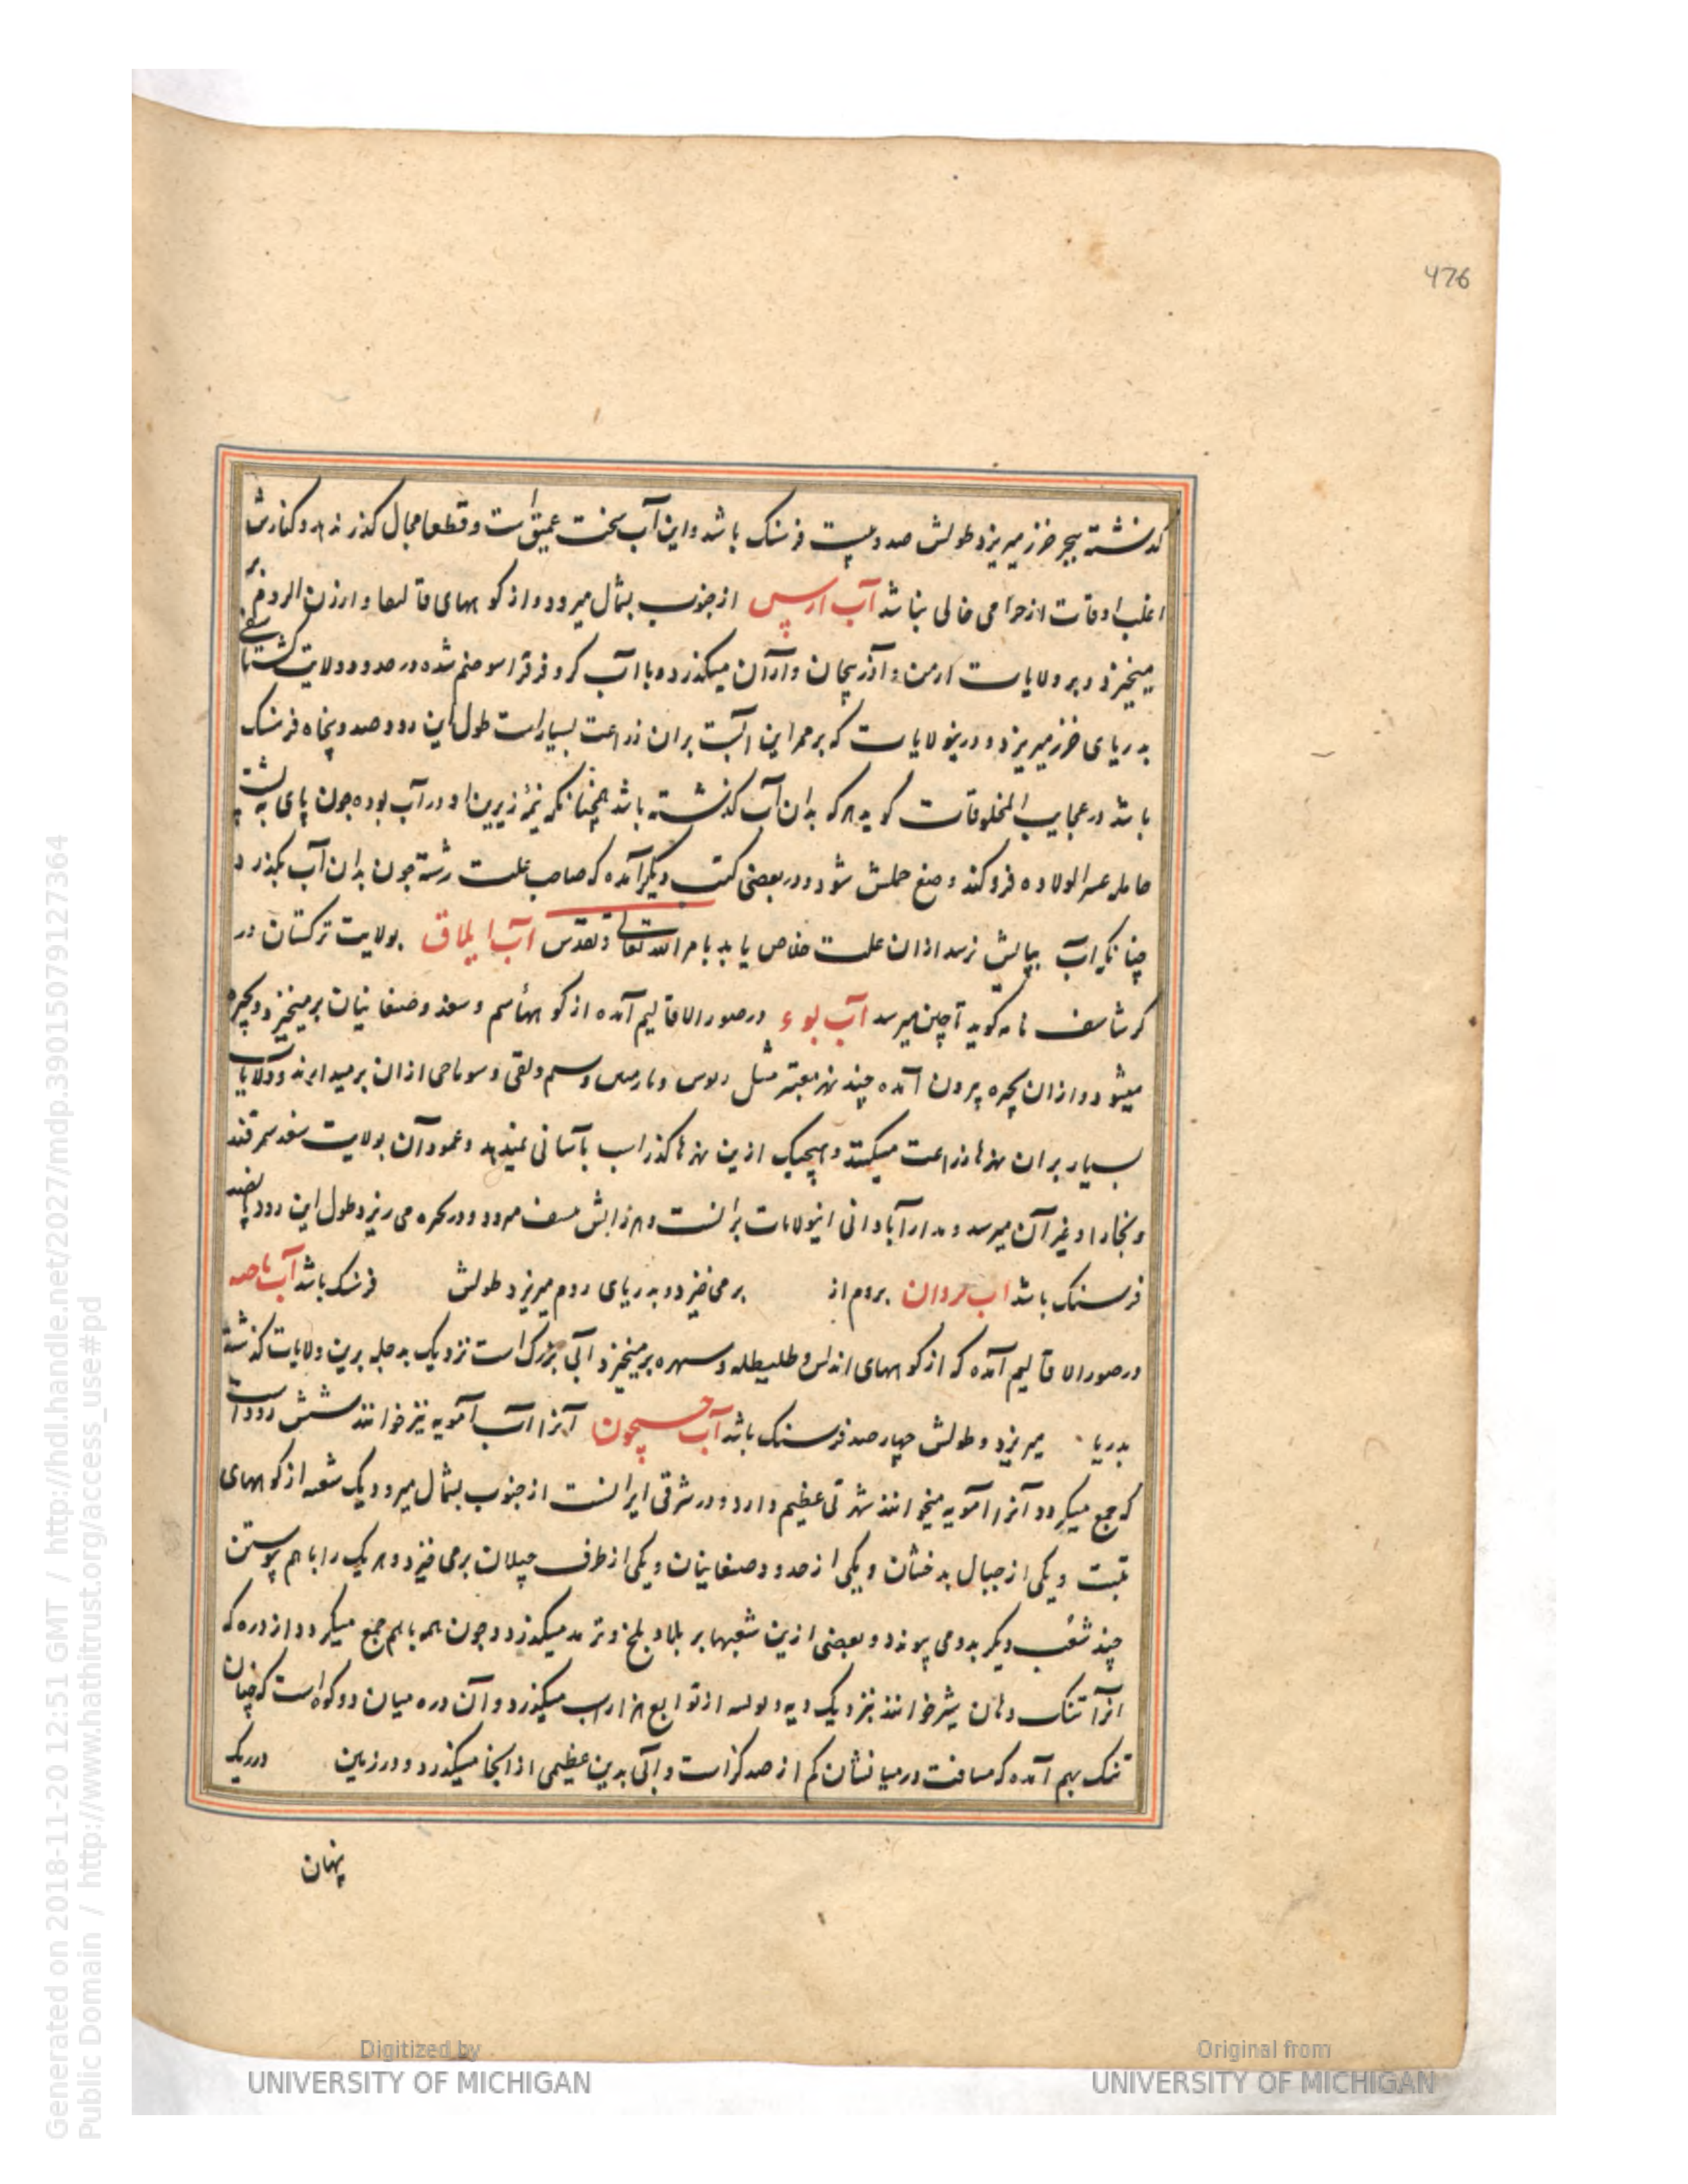 476
گذشته ببحر خزر میریزد طولش صد و بیست فرسنک باشد و این آب سخت عمیق است و قطعا مجال گذر ندهد و کنارش
اغلب اوقات از حرامی خالی نباشد آب ارس از جنوب بشمال میرود و از کوههای قالیقلا و ارزن الروم بر
میخیزد و بر ولایات ارمن و آذربیجان و آران میگذرد و با آب کر و قراسو ضم شده در حدود ولایت گشتاسفی
بدریای خزر میریزد و درین ولایات که بر ممر این آبست بران زراعت بسیار است طول این رود صد و پنجاه فرسنک
باشد در عجایب المخلوقات گوید هر که بدان آب گذشته باشد همچنانکه نیمه زیرین او در آب بوده چون پای به پشت
حامله عسر الولاده فرو کند وضع حملش شود و در بعضی کتب دیگر آمده که صاحب علت رشته چون بدان آب بگذرد
چنانک آب بپایش رسد ازان علت خلاص یابد بامر الله تعالی و تقدس آب ایلاق بولایت ترکستان در
کرشاسف نامه گوید تا چین میرسد آب بوء در صور الاقالیم آمده از کوههای سم و سغد و صغانیان برمیخیزد و بحیره
میشود و ازان بحیره بیرون آمده چند نهر معتبر مثل ازان برمیدارند و ولایات
بسیار بران نهرها زراعت میکنند و هیچیک ازین نهرها گذر آب بآسانی نمیدهد و عمود آن بولایت سغد سمرقند
و بخارا و غیر آن میرسد و مدار آبادانی این ولایات برآنست و هرزآبش میرود و در بحره می ریزد طول این رود پانصد
فرسنک باشد آب بروم از برمی خیزد و بدریای روم میریزد طولش فرسنک باشد آب
در صور الاقالیم آمده که از کوههای اندلس و طلیطله و برمیخیزد آبی بزرک است نزدیک بدجله برین ولایات گذشته
بدریا میریزد و طولش چهار صد فرسنک باشد آب جیحون آنرا آب آمویه نیز خوانند شش رود است
که جمع میگردد آنرا آمویه میخوانند شهرتی عظیم دارد و در شرقی ایرانست از جنوب بشمال میرود یک شعبه از کوههای
تبت و یکی از جبال بدخشان و یکی از حدود صغانیان و یکی از طرف برمی خیزد و هر یک را با هم پیوستن
چند شعب دیگر بدو می پیوندد و بعضی ازین شعبها بر بلاد بلخ و ترمد میگذرد و چون همه باهم جمع میگردد از دره که
آنرا تنک دهان شیر خوانند بنزدیک دیه از توابع هزاراسب میگذرد و آن دره میان دو کوه است که چنان
تنک بهم آمده که مسافت در میانشان کم از صد گز است و آبی بدین عظیمی از آنجا میگذرد و در زمین در ریک
پنهان
Digitized by
UNIVERSITY OF MICHIGAN
Original from
UNIVERSITY OF MICHIGAN
Generated on 2018-11-20 12:51 GMT / http://hdl.handle.net/2027/mdp.39015079127364
Public Domain / http://www.hathitrust.org/access_use#pd